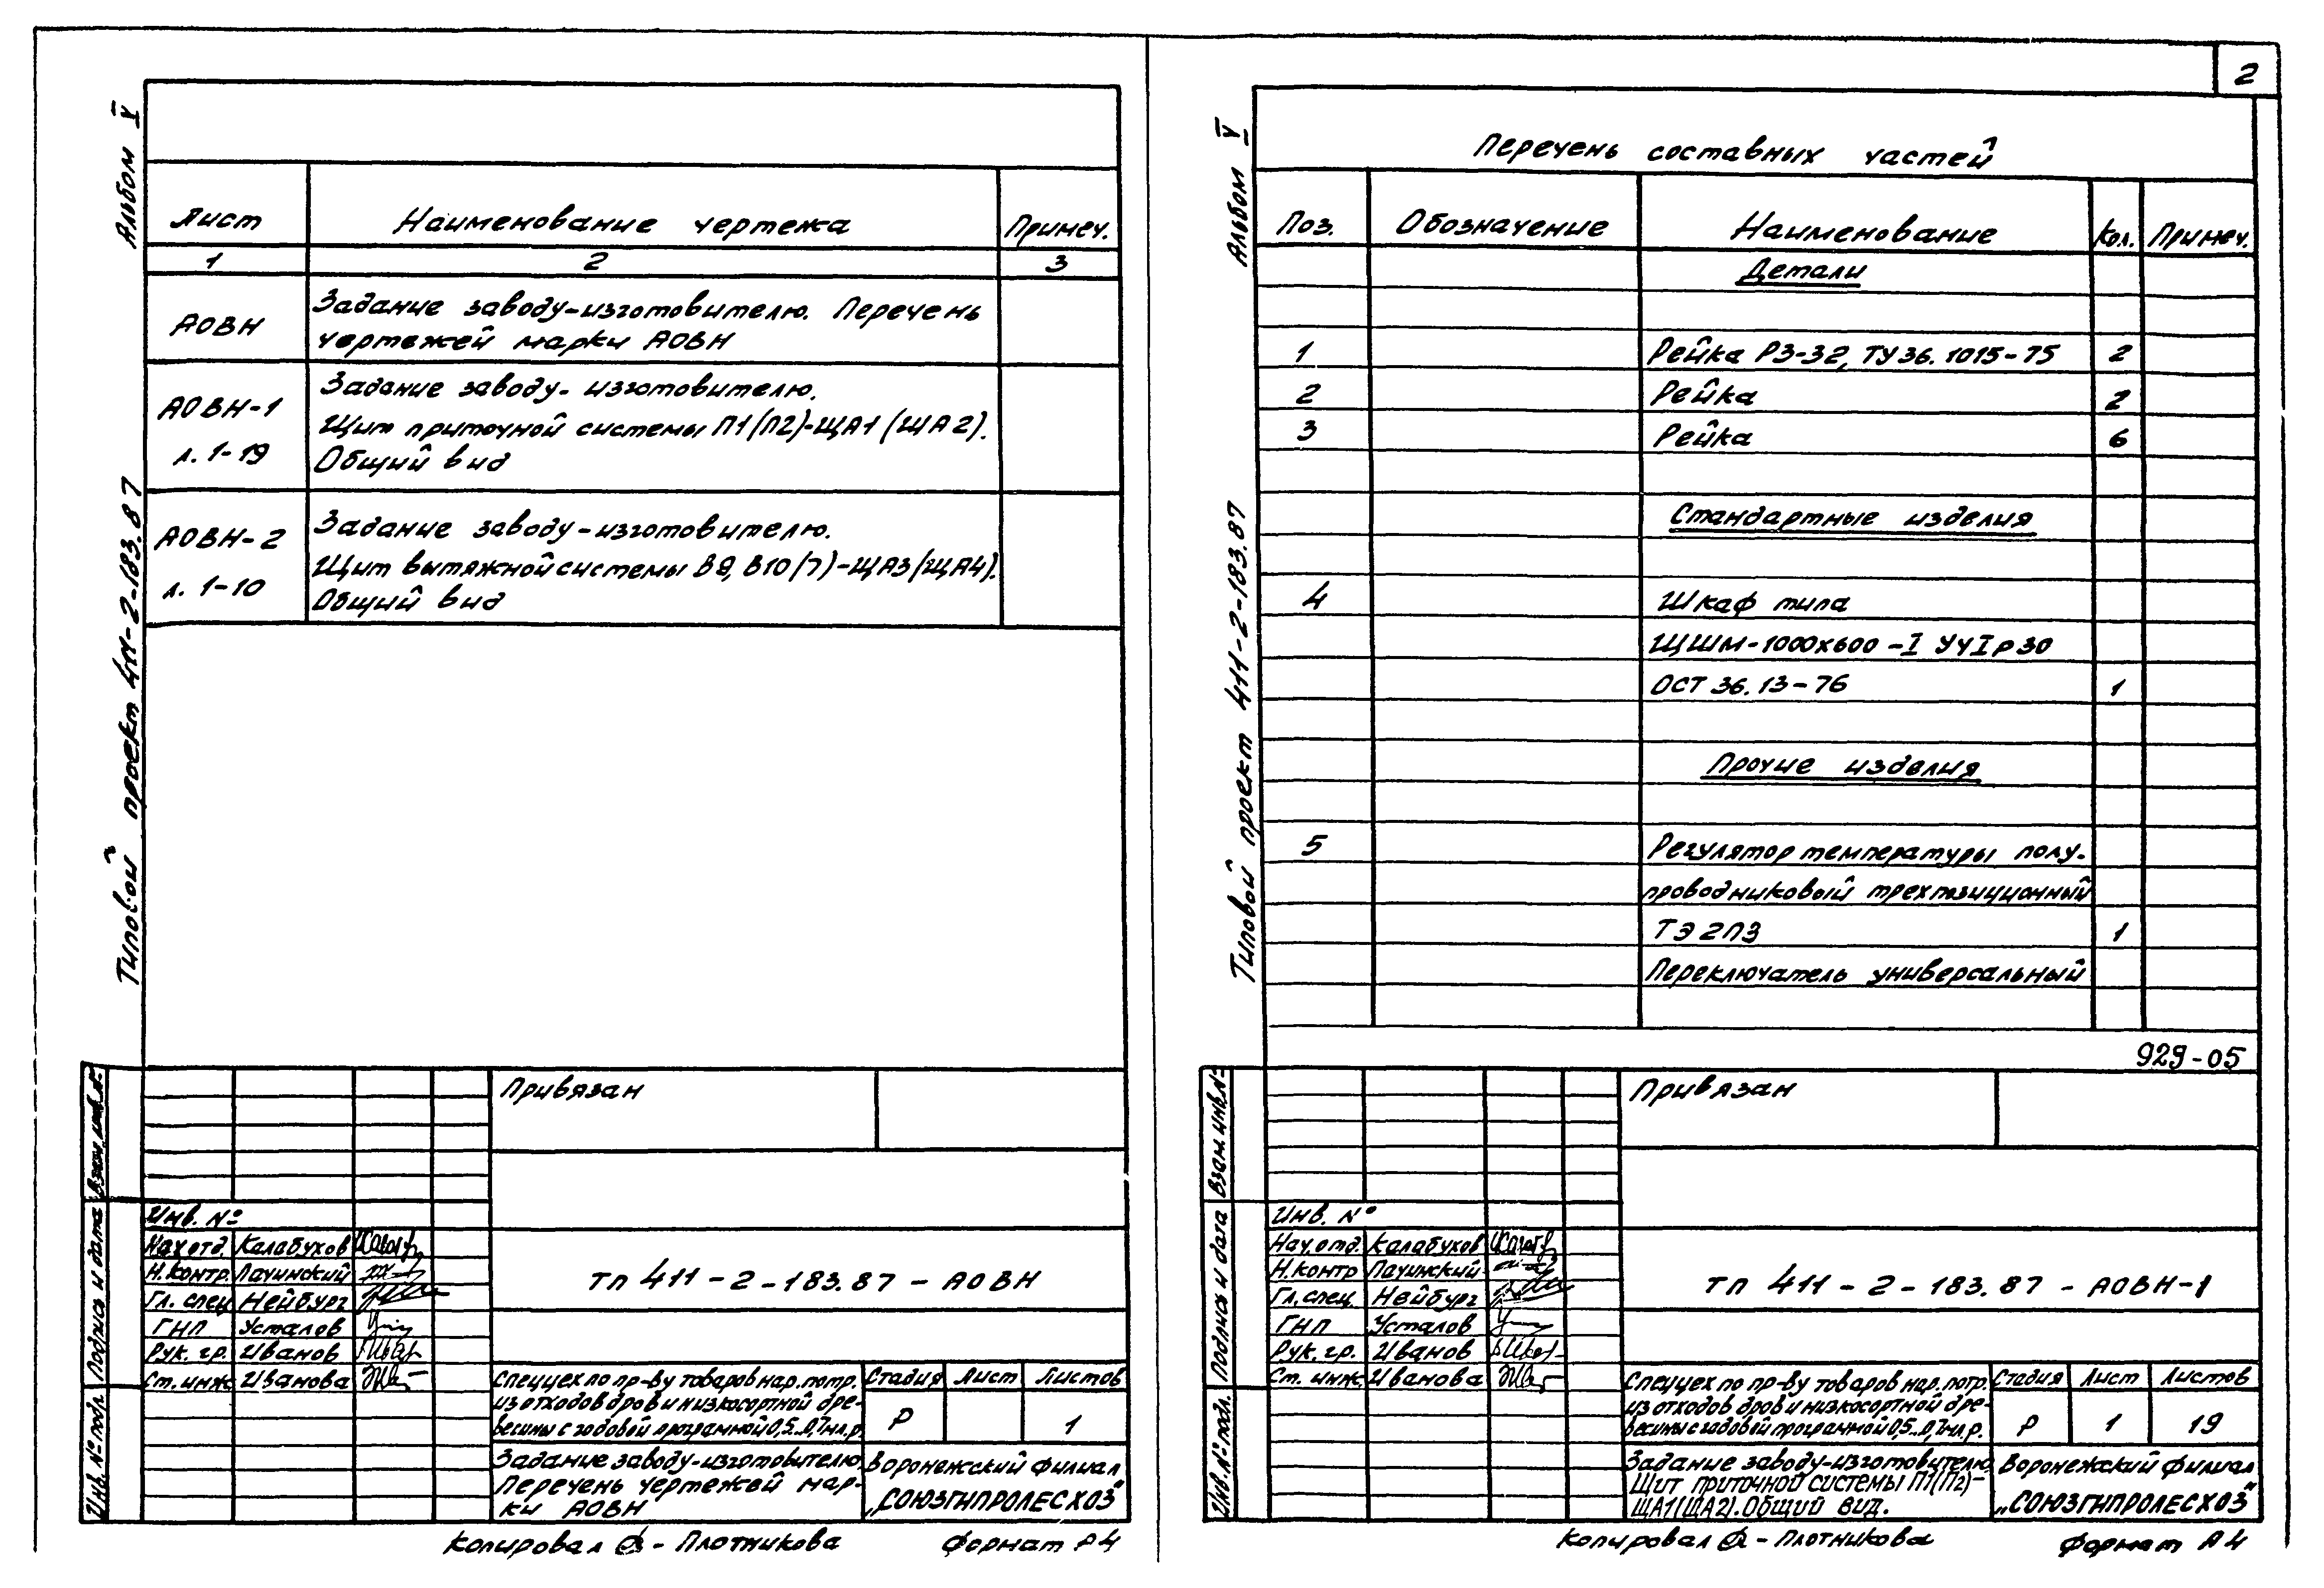 Альбом V
Типовой проект 411-2-183.87
Лист Наименование чертежа Примеч.
1 2 3
АОВН
Задание заводу-изготовителю. Перечень
чертежей марки АОВН
АОВН-1
л. 1-19
Задание заводу-изготовителю.
Щит приточной системы П1(П2)-ЩА1(ЩА2).
Общий вид
АОВН-2
л. 1-10
Задание заводу-изготовителю.
Щит вытяжной системы В9, В10(7)-ЩА3(ЩА4).
Общий вид
Взам. инв. №
Подпись и дата
Инв. № подл.
Привязан
Инв. №
Нач. отд. Калабухов
Н. контр. Лачинский
Гл. спец. Нейбург
ГНП Усталов
Рук. гр. Иванов
Ст. инж. Иванова
ТП 411-2-183.87-АОВН
Спеццех по пр-ву товаров нар. потр.
из отходов дров и низкосортной дре-
весины с годовой программой 0,5...0,7 мл. р.
Стадия Лист Листов
Р 1
Задание заводу-изготовителю
Перечень чертежей мар-
ки АОВН
Воронежский филиал
„СОЮЗГИПРОЛЕСХОЗ"
Копировал - Плотникова Формат А4
2
Альбом V
Типовой проект 411-2-183.87
Перечень составных частей
Поз. Обозначение Наименование Кол. Примеч.
Детали
1 Рейка Р3-32, ТУ36.1015-75 2
2 Рейка 2
3 Рейка 6
Стандартные изделия
4 Шкаф типа
ЩШМ-1000х600-I УЧ Iр30
ОСТ 36.13-76 1
Прочие изделия
5 Регулятор температуры полу-
проводниковый трехпозиционный
ТЭ2П3 1
Переключатель универсальный
929-05
Взам. инв. №
Подпись и дата
Инв. № подл.
Привязан
Инв. №
Нач. отд. Калабухов
Н. контр Лачинский
Гл. спец. Нейбург
ГНП Усталов
Рук. гр. Иванов
Ст. инж. Иванова
ТП 411-2-183.87-АОВН-1
Спеццех по пр-ву товаров нар. потр.
из отходов дров и низкосортной дре-
весины с годовой программой 0,5...0,7 мл. р.
Стадия Лист Листов
Р 1 19
Задание заводу-изготовителю
Щит приточной системы П1(П2)-
ЩА1(ЩА2). Общий вид.
Воронежский филиал
„СОЮЗГИПРОЛЕСХОЗ"
Копировал - Плотникова Формат А4